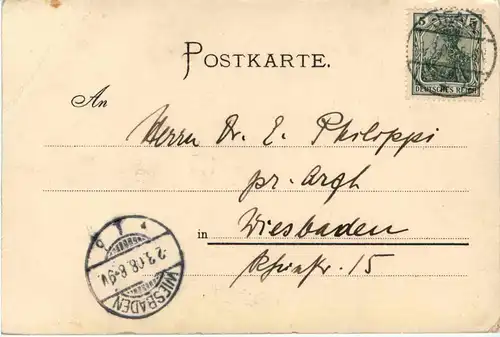 5
DEUTSCHES REICH
POSTKARTE.
An
Herrn Dr. E. Philippi
pr. Arzt
in Wiesbaden
Rheinstr. 15
WIESBADEN
2.3.08.8-9V.